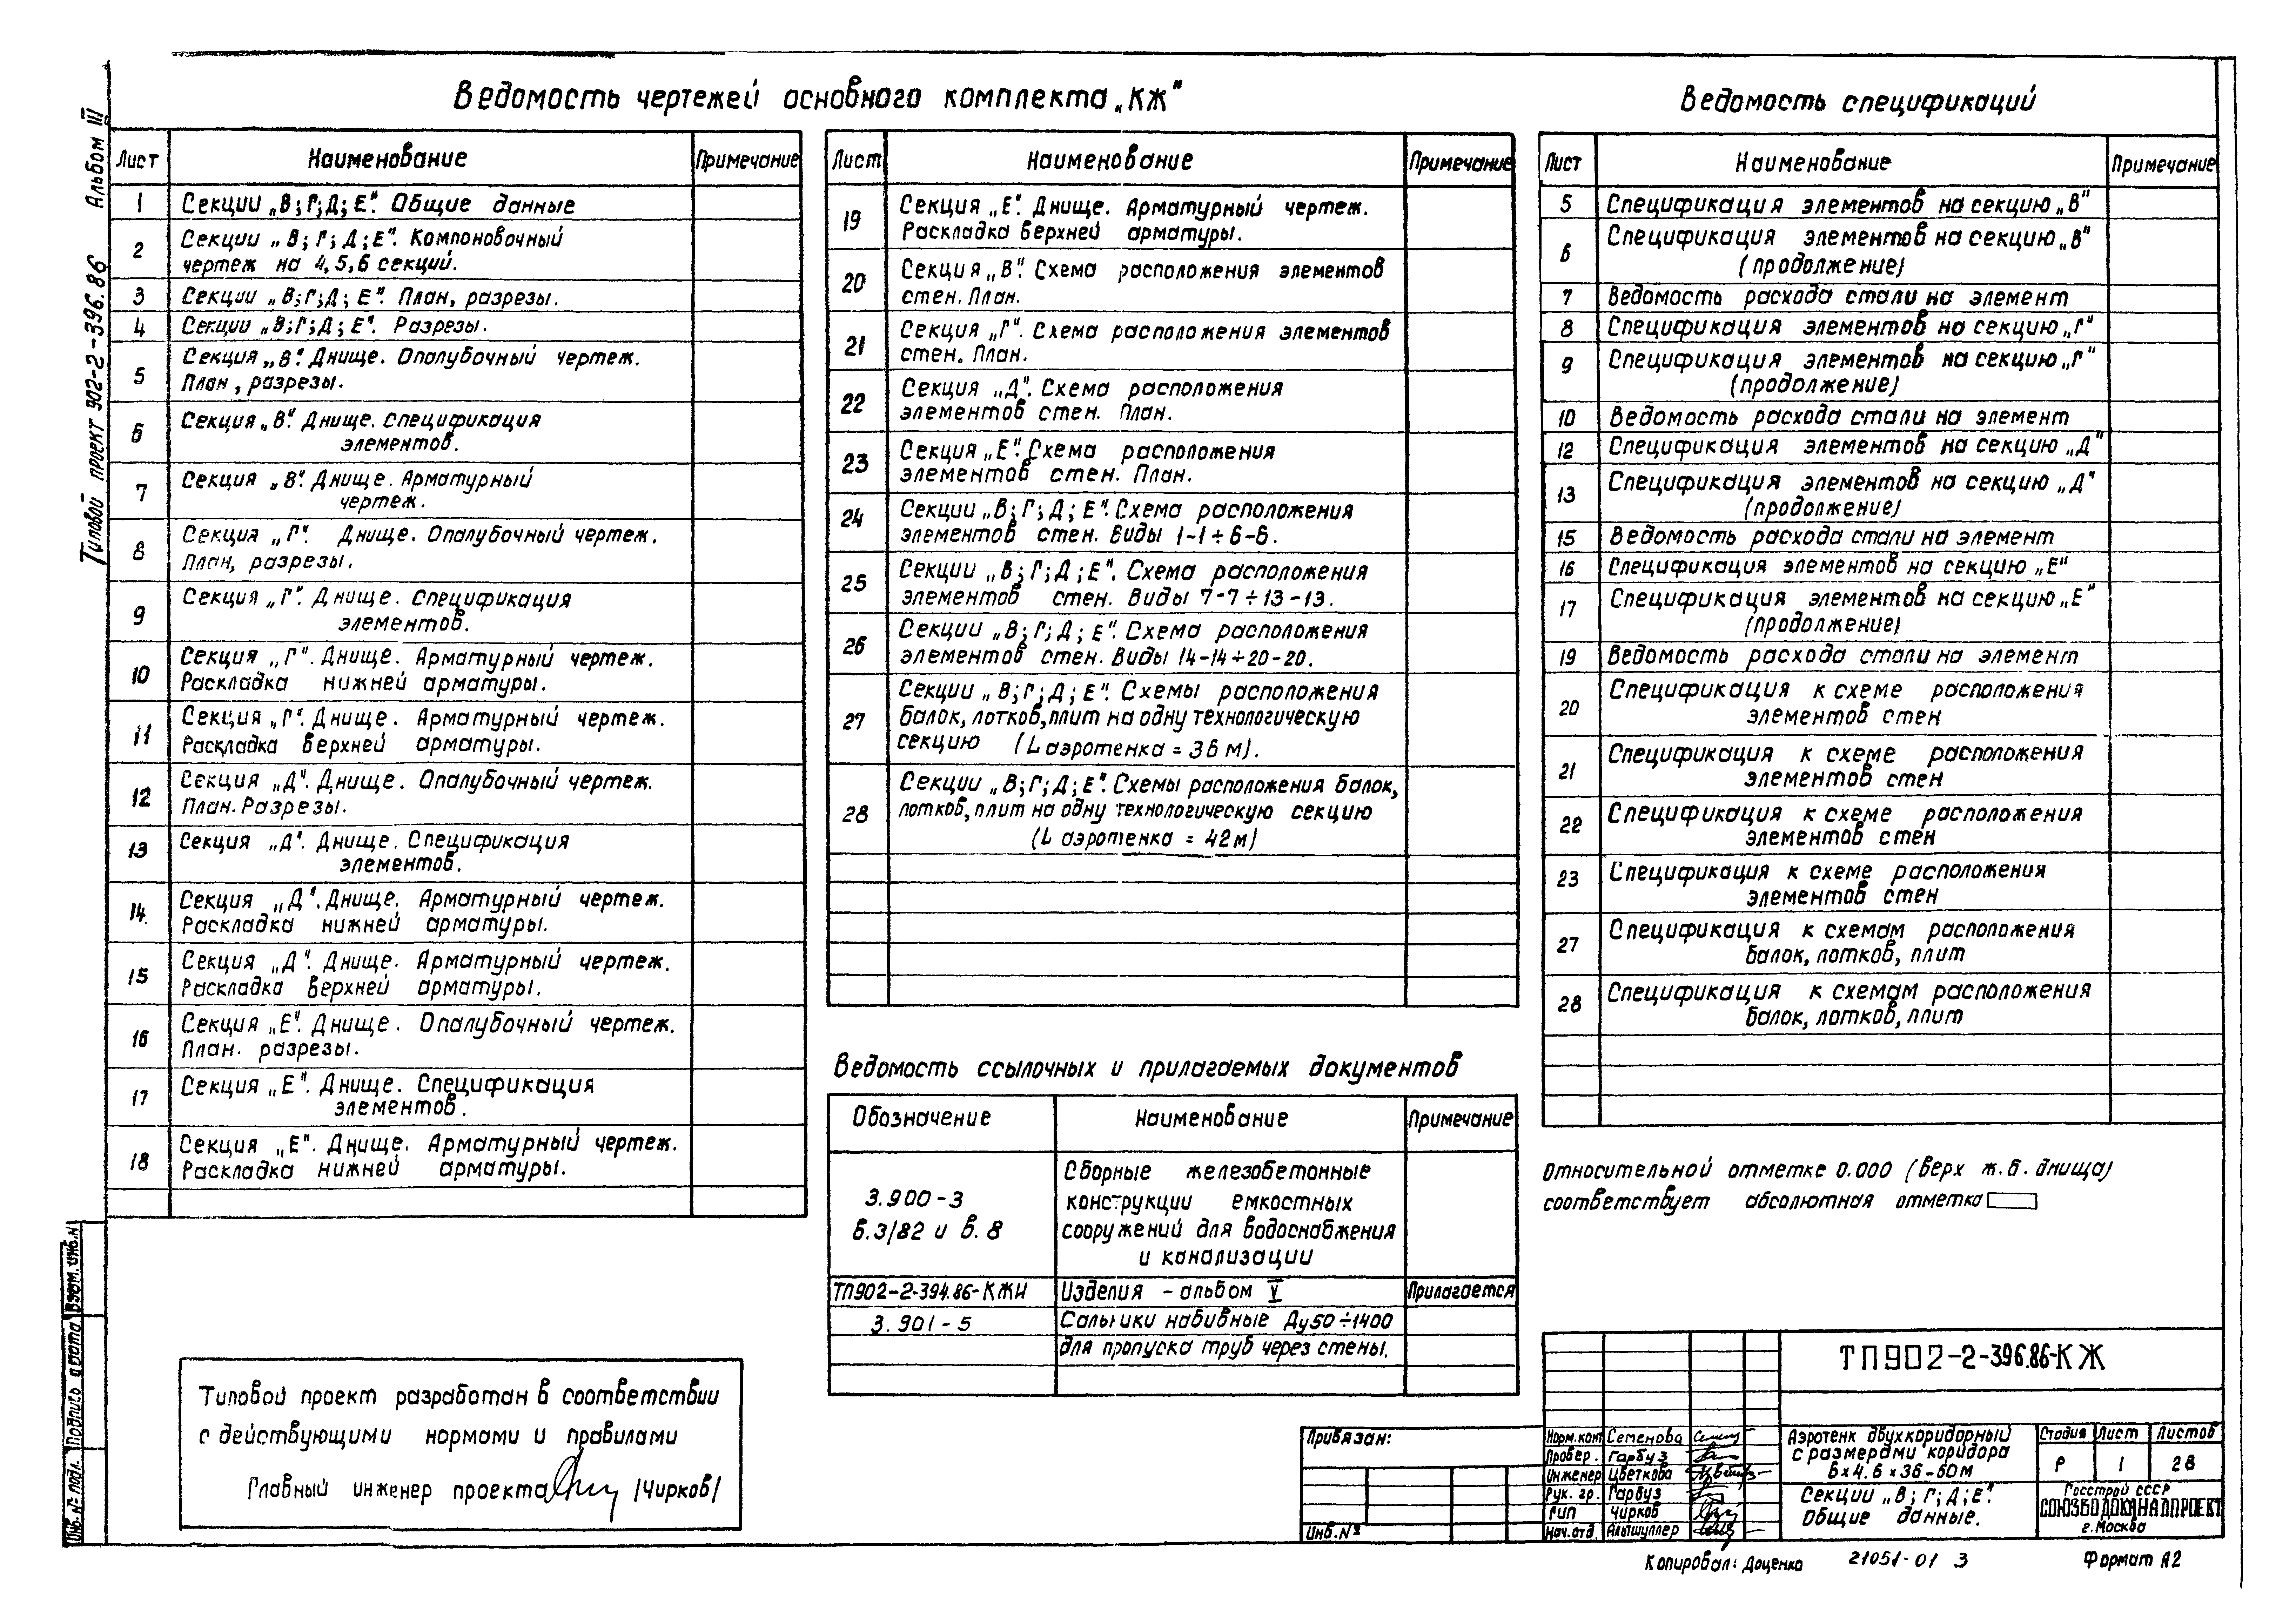 Типовой проект 902-2-396.86 Альбом III
Ведомость чертежей основного комплекта „КЖ"
Лист Наименование Примечание
1 Секции „В; Г; Д; Е". Общие данные
2 Секции „В; Г; Д; Е". Компоновочный
чертеж на 4, 5, 6 секций.
3 Секции „В; Г; Д; Е". План, разрезы.
4 Секции „В; Г; Д; Е". Разрезы.
5 Секция „В". Днище. Опалубочный чертеж.
План, разрезы.
6 Секция „В". Днище. Спецификация
элементов.
7 Секция „В". Днище. Арматурный
чертеж.
8 Секция „Г". Днище. Опалубочный чертеж.
План, разрезы.
9 Секция „Г". Днище. Спецификация
элементов.
10 Секция „Г". Днище. Арматурный чертеж.
Раскладка нижней арматуры.
11 Секция „Г". Днище. Арматурный чертеж.
Раскладка верхней арматуры.
12 Секция „Д". Днище. Опалубочный чертеж.
План. Разрезы.
13 Секция „Д". Днище. Спецификация
элементов.
14 Секция „Д". Днище. Арматурный чертеж.
Раскладка нижней арматуры.
15 Секция „Д". Днище. Арматурный чертеж.
Раскладка верхней арматуры.
16 Секция „Е". Днище. Опалубочный чертеж.
План. разрезы.
17 Секция „Е". Днище. Спецификация
элементов.
18 Секция „Е". Днище. Арматурный чертеж.
Раскладка нижней арматуры.
Лист Наименование Примечание
19 Секция „Е". Днище. Арматурный чертеж.
Раскладка верхней арматуры.
20 Секция „В". Схема расположения элементов
стен. План.
21 Секция „Г". Схема расположения элементов
стен. План.
22 Секция „Д". Схема расположения
элементов стен. План.
23 Секция „Е". Схема расположения
элементов стен. План.
24 Секции „В; Г; Д; Е". Схема расположения
элементов стен. Виды 1-1÷6-6.
25 Секции „В; Г; Д; Е". Схема расположения
элементов стен. Виды 7-7÷13-13.
26 Секции „В; Г; Д; Е". Схема расположения
элементов стен. Виды 14-14÷20-20.
27 Секции „В; Г; Д; Е". Схемы расположения
балок, лотков, плит на одну технологическую
секцию (L аэротенка = 36 м).
28 Секции „В; Г; Д; Е". Схемы расположения балок,
лотков, плит на одну технологическую секцию
(L аэротенка = 42 м)
Ведомость спецификаций
Лист Наименование Примечание
5 Спецификация элементов на секцию „В"
6 Спецификация элементов на секцию „В"
(продолжение)
7 Ведомость расхода стали на элемент
8 Спецификация элементов на секцию „Г"
9 Спецификация элементов на секцию „Г"
(продолжение)
10 Ведомость расхода стали на элемент
12 Спецификация элементов на секцию „Д"
13 Спецификация элементов на секцию „Д"
(продолжение)
15 Ведомость расхода стали на элемент
16 Спецификация элементов на секцию „Е"
17 Спецификация элементов на секцию „Е"
(продолжение)
19 Ведомость расхода стали на элемент
20 Спецификация к схеме расположения
элементов стен
21 Спецификация к схеме расположения
элементов стен
22 Спецификация к схеме расположения
элементов стен
23 Спецификация к схеме расположения
элементов стен
27 Спецификация к схемам расположения
балок, лотков, плит
28 Спецификация к схемам расположения
балок, лотков, плит
Ведомость ссылочных и прилагаемых документов
Обозначение Наименование Примечание
3.900-3
в.3/82 и в. 8
Сборные железобетонные
конструкции емкостных
сооружений для водоснабжения
и канализации
ТП902-2-394.86-КЖИ Изделия - альбом V Прилагается
3.901-5 Сальники набивные Ду50÷1400
для пропуска труб через стены.
Относительной отметке 0.000 (верх ж.б. днища)
соответствует абсолютная отметка
Типовой проект разработан в соответствии
с действующими нормами и правилами
Главный инженер проекта /Чирков/
Инв.№ подл. Подпись и дата Взам. инв.№
Привязан:
Инв.№
ТП902-2-396.86-КЖ
Норм.конт Семенова
Провер. Гарбуз
Инженер Цветкова
Рук. гр. Гарбуз
ГИП Чирков
Нач.отд. Альтшуллер
Аэротенк двухкоридорный
с размерами коридора
6х4.6х36-60м
Стадия Лист Листов
Р 1 28
Секции „В; Г; Д; Е".
Общие данные.
Госстрой СССР
СОЮЗВОДОКАНАЛПРОЕКТ
г. Москва
Копировал: Доценко 21051-01 3 Формат А2